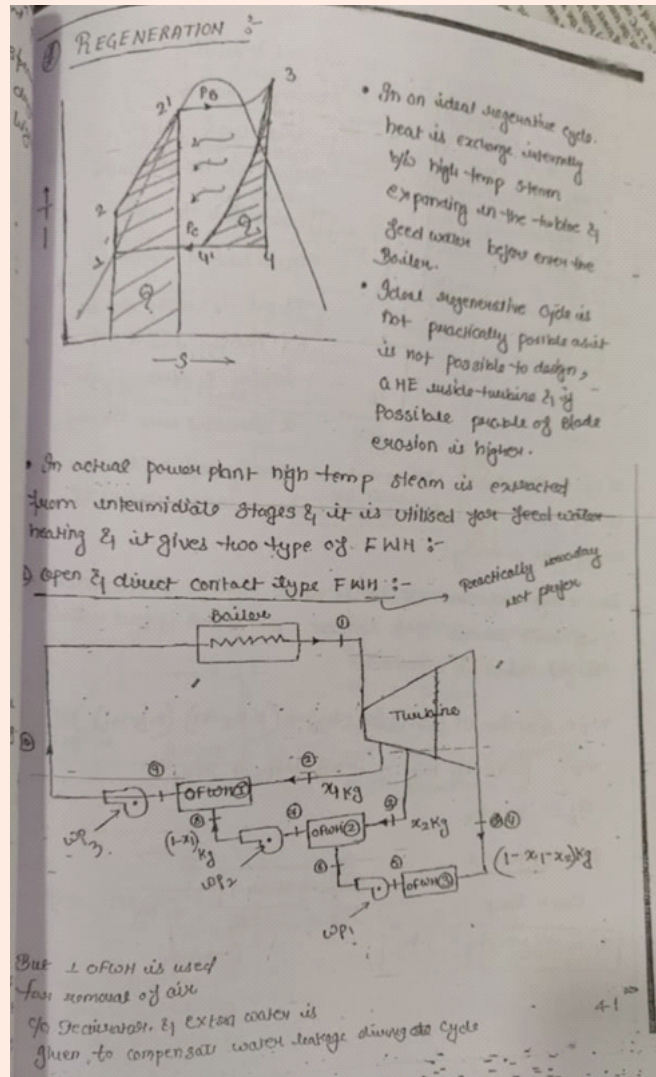 REGENERATION :-
3
2'
PB
2
1
PC
4'
4
Q
Q
T
S
• In an ideal regenerative cycle.
heat is exchange internally
b/w high temp steam
expanding in the turbine &
feed water before enter the
Boiler.
• Ideal regenerative cycle is
not practically possible as it
is not possible to design,
a HE inside turbine & if
possible of blade
erosion is higher.
• In actual power plant high temp steam is extracted
from intermidiate stages & it is utilised for feed water
heating & it gives two type of FWH :-
1) Open & direct contact type FWH :-
Practically nowaday
not prefer
Boiler
①
Turbine
②
x1 kg
⑨
OFWH①
⑧
(1-x1)
kg
WP3
WP2
OFWH②
③
x2 kg
④
(1-x1-x2)kg
⑥
⑤
OFWH③
WP1
But 1 OFWH is used
for removal of air
c/o & water is
given to compensate water leakage cycle
41